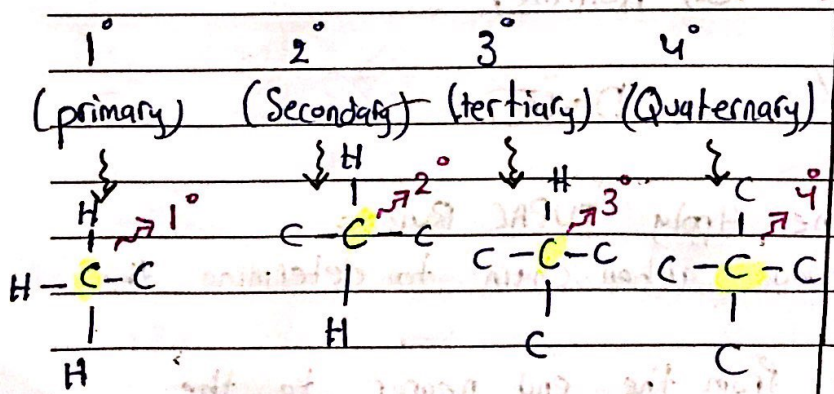 1° 2° 3° 4°
(primary) (Secondary) (tertiary) (Quaternary)
H C
H 1° 2° H 3° 4°
C – C – C C – C – C C – C – C
H – C – C
H C C
H